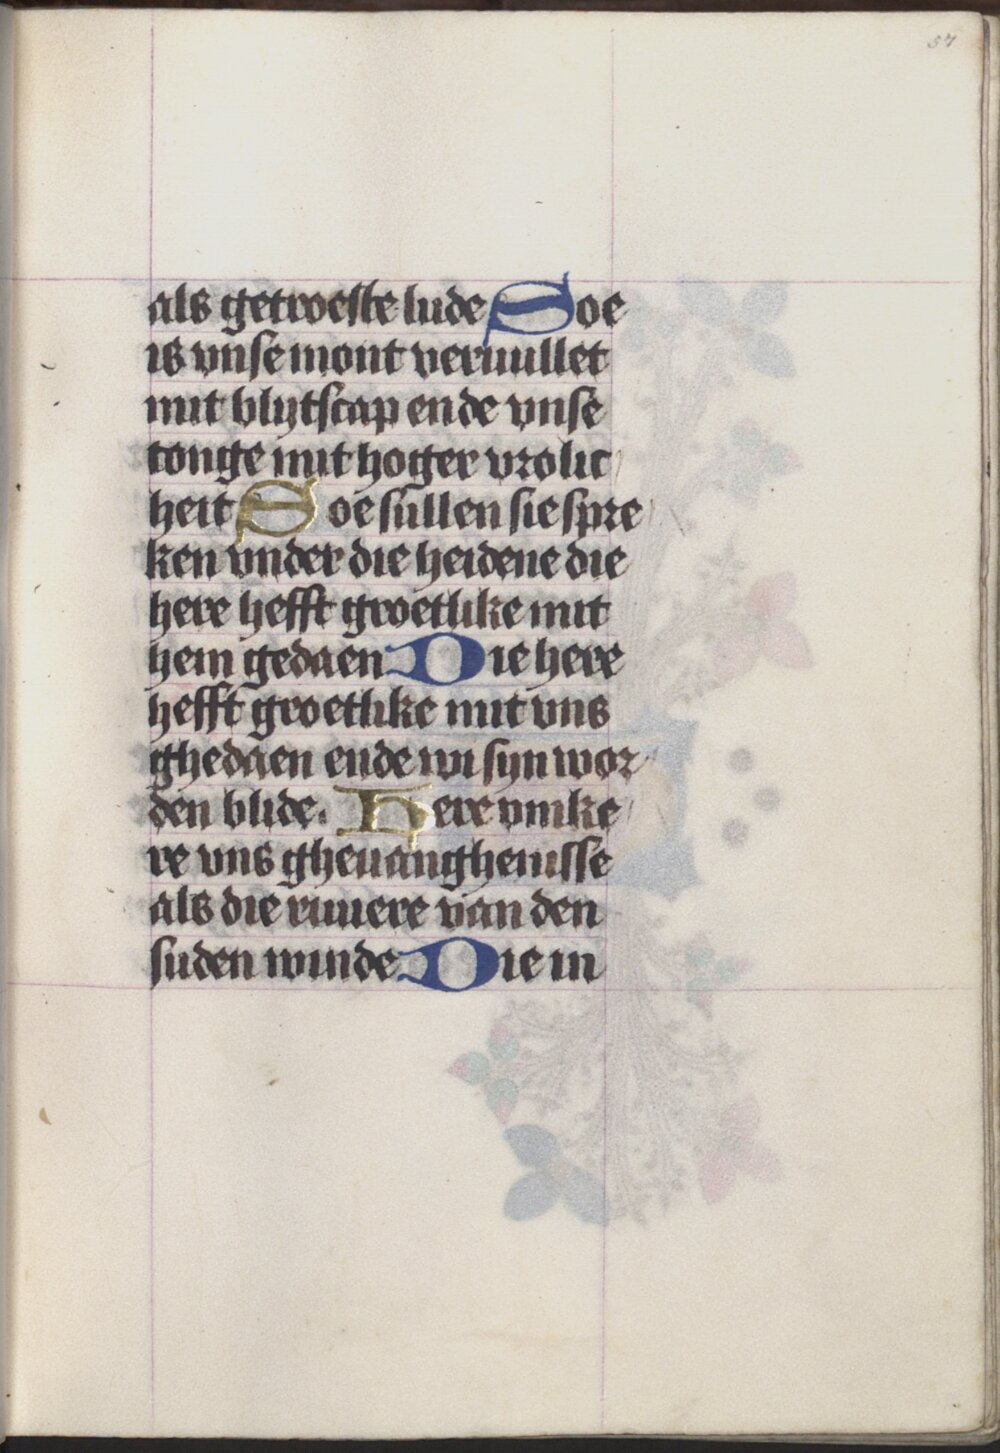 57
als getroeste lude Soe
is vnse mont veruullet
mit blijtscap ende vnse
tonge mit hoger vrolic
heit Soe sullen sie spre
ken vnder die heidene die
here hefft groetlike mit
hem gedaen Die here
hefft groetlike mit vns
ghedaen ende wi sijn wor
den blide. Here vmke
re vns gheuanghenisse
als die riuiere van den
suden winde Die in